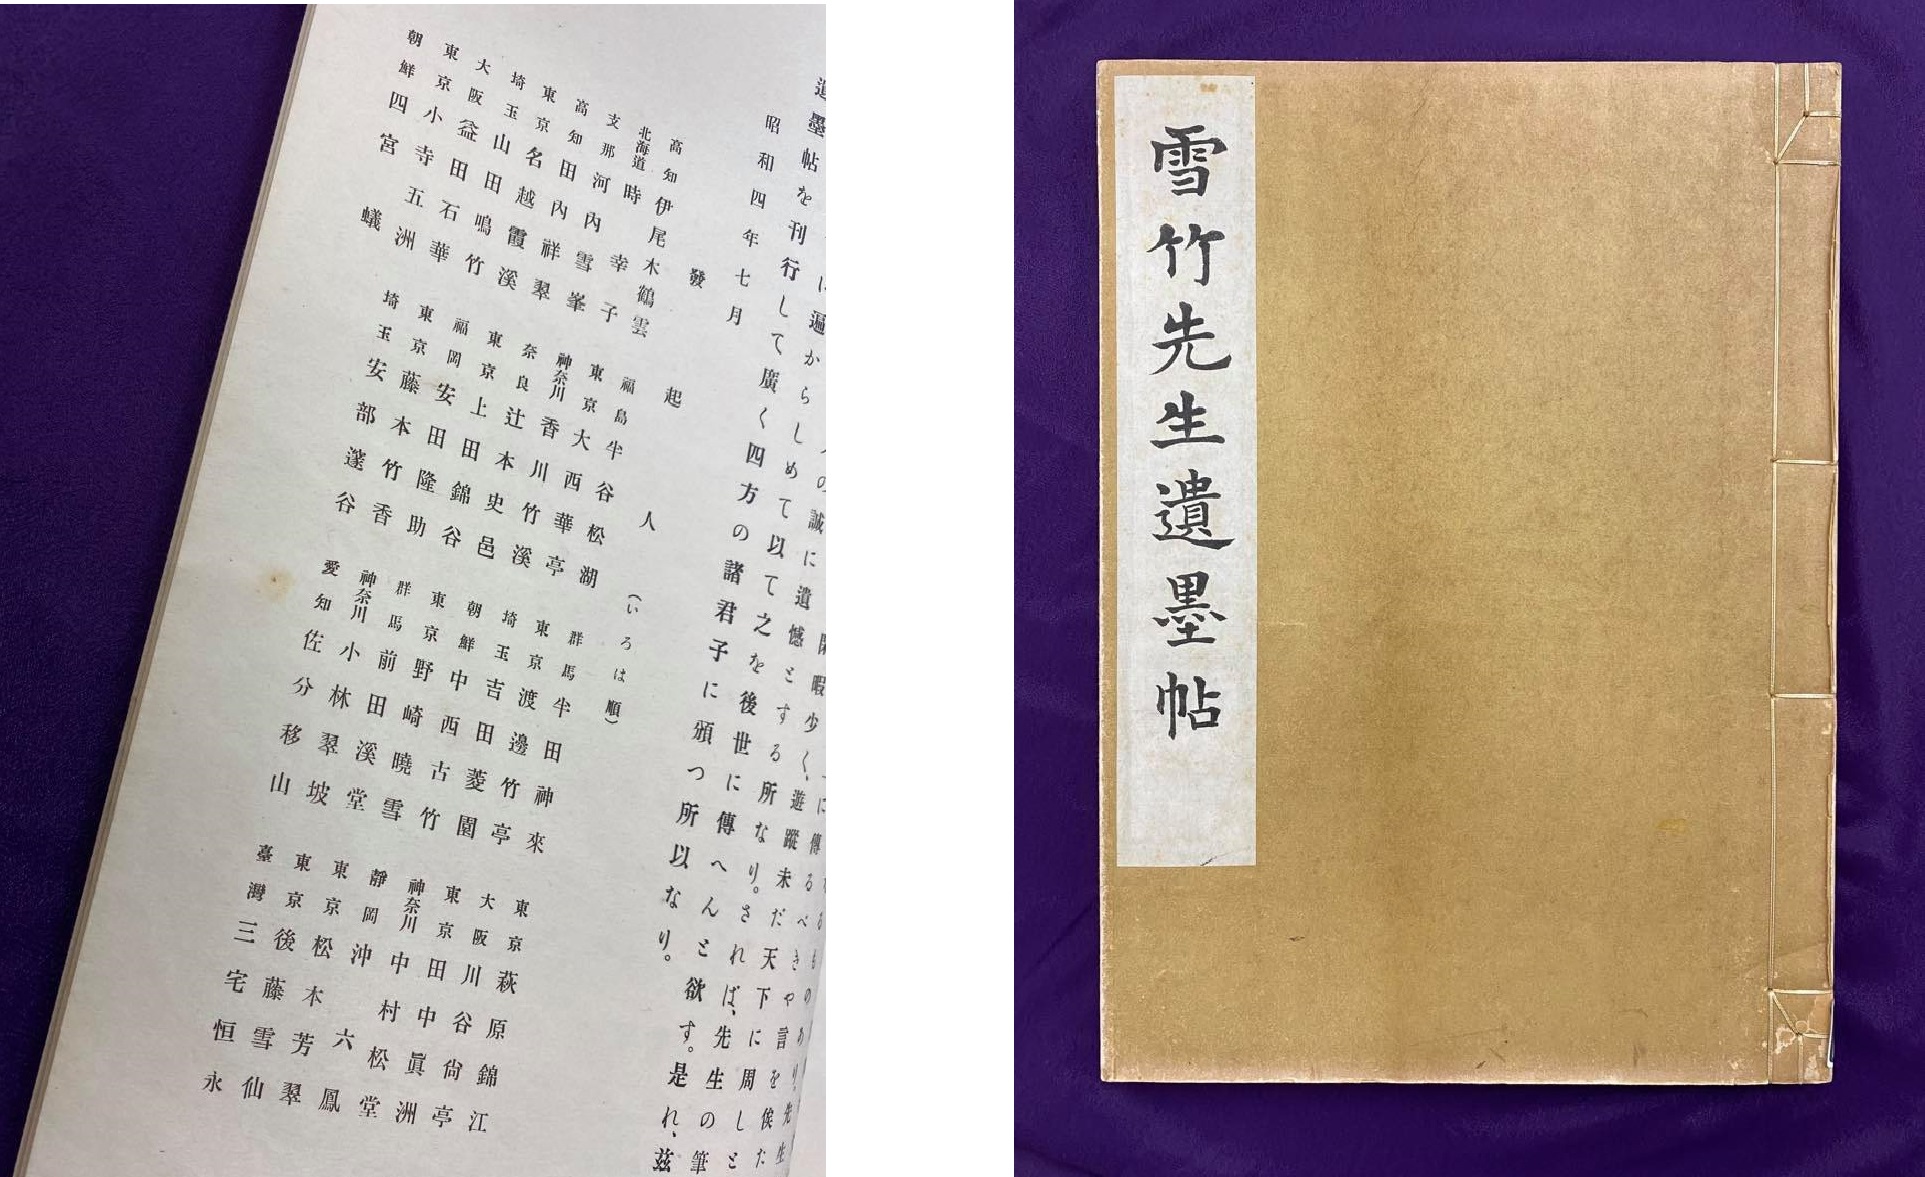 るものあり。先生
に傳るべきや言を俟た
閑暇少く、遊蹤未だ天下に周しと
の誠に遺憾とする所なり。されば、先生の筆
に遍からしめて以て之を後世に傳へんと欲す。是れ、茲
遺墨帖を刊行して廣く四方の諸君子に頒つ所以なり。
昭和四年七月
發起人(いろは順)
高知 伊尾木鶴雲
北海道 時幸子
支那 河內雪峯
高知 田內祥翠
東京 名越霞溪
埼玉 山田鳴竹
大阪 益田石華
東京 小寺五洲
朝鮮 四宮蟻
福島 牛谷松湖
東京 大西華亭
神奈川 香川竹溪
奈良 辻本史邑
東京 上田錦谷
福岡 安田隆助
東京 藤本竹香
埼玉 安部蓬谷
群馬 牛田神來
東京 渡邊竹亭
埼玉 吉田菱園
朝鮮 中西古竹
東京 野崎曉雪
群馬 前田溪堂
神奈川 小林翠坡
愛知 佐分移山
東京 萩原錦江
大阪 川谷尙亭
東京 田中眞洲
神奈川 中村松堂
靜岡 沖六鳳
東京 松本芳翠
東京 後藤雪仙
臺灣 三宅恒永
雪竹先生遺墨帖